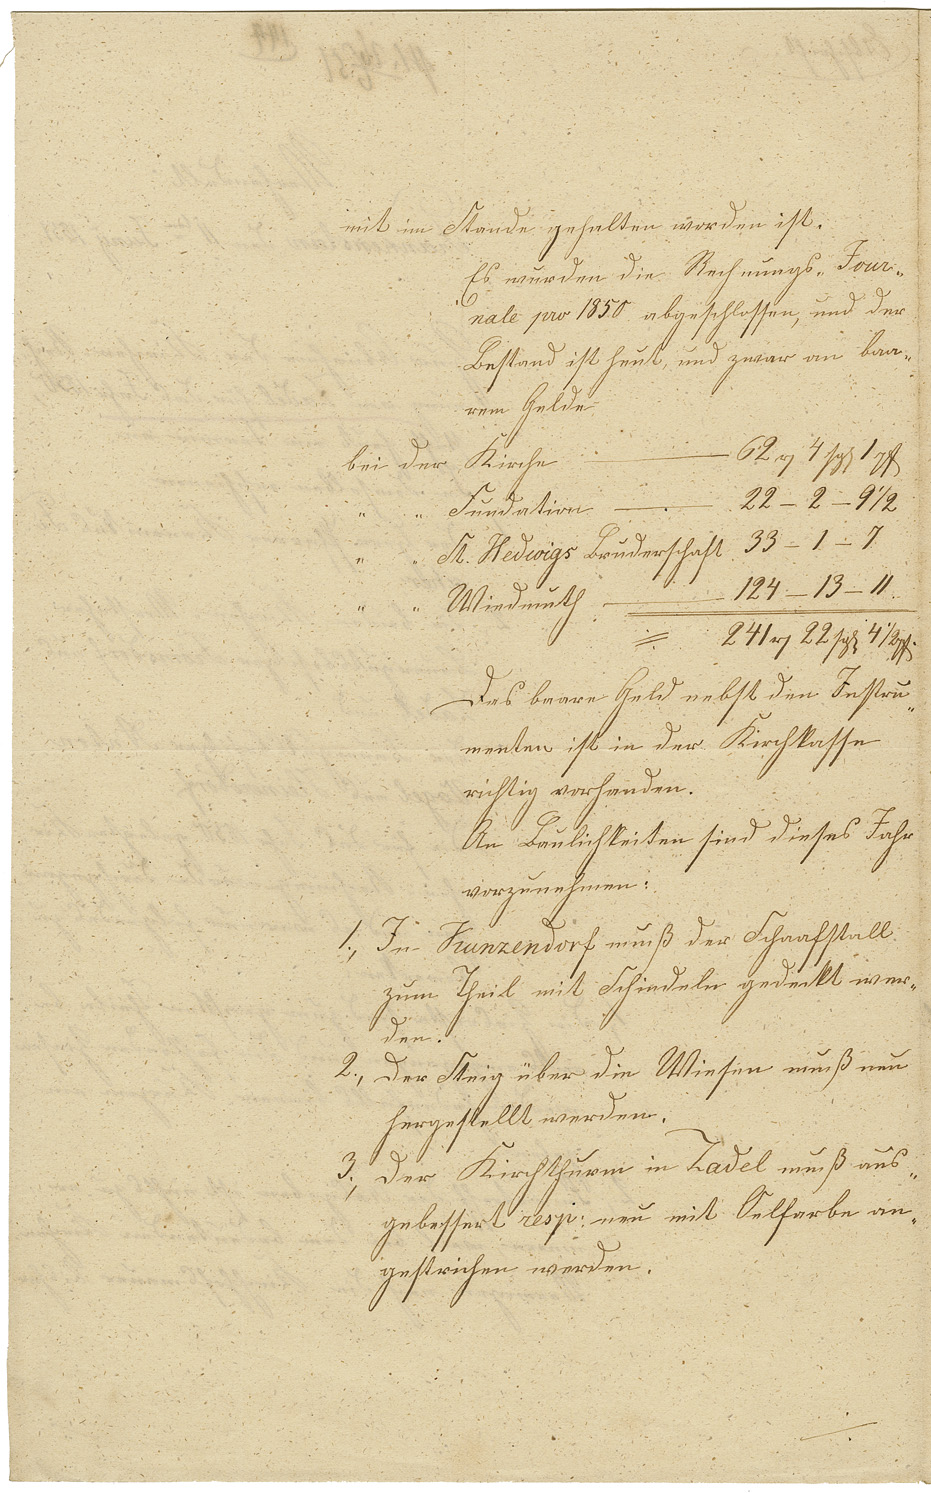 mit im Stande gehalten worden ist.
Es wurden die Rechnungs-Jour-
nale pro 1850 abgeschlossen, und der
Bestand ist heut, und zwar an baa-
rem Gelde
bei der Kirche 62 rg 4 sgl 1 pf
" " Fundation 22 – 2 – 9 1/2
" " St. Hedwigs Bruderschaft 33 – 1 – 7
" " Wiedmuth 124 – 13 – 11.
= 241 rg 22 sgl 4 1/2 pf.
Das baare Geld nebst den Instru-
menten ist in der Kirchkasse
richtig vorhanden.
An Baulichkeiten sind dieses Jahr
vorzunehmen:
1., In Kunzendorf muß der Schaafstall
zum Theil mit Schindeln gedeckt wer-
den.
2., Der Steig über die Wiesen muß neu
hergestellt werden.
3., Der Kirchthurm in Zadel muß aus-
gebessert resp: neu mit Oelfarbe an-
gestrichen werden.